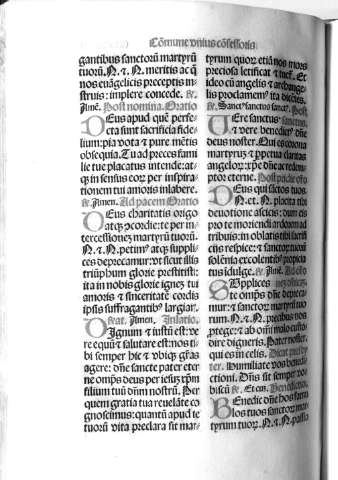 Cõmune vnius cõfessoris.
gantibus sanctorũ martyrũ
tuorũ. N. &. N. meritis ac q̃
nos euãgelicis preceptis in
struis: implere concede. &.
Jimẽ. Post nomina. Oratio
DEus apud quẽ perfe
cta sunt sacrificia fide
lium: pia vota & pure mẽtis
obsequia. Tu ad preces fami
lie tue placatus intende: at
q; in sensus cor per inspira
tionem tui amoris inlabere.
&. Jimen. Ad pacem Oratio
DEus charitatis origo
atq; ꝯcordie: te per in
tercessionez martyrũ tuorũ.
N. &. N. petim⁹ atq; suppli
ces deprecamur: vt sicut illis
triũphum glorie prestitisti:
ita in nobis gloriē ignez tui
amoris & sinceritatē cordis
ipsis suffragantib⁹ largiar.
Jimen. Inlatio.
DIgnum & iustũ est: ve
re equũ & salutare est: nos ti
bi semper hic & vbiq; grãs
agere: dñe sancte pater eter
ne omp̃s deus per iesuz xp̃m
filium tuũ dñm nostrũ. Per
quem gratia tua reuelãte co
gnoscimus: quantũ apud te
tuorũ vita preclara sit mar
tyrum quor etiã nos mors
preciosa letificat & tuet. Et
ideo cũ angelis & archange
lis proclamem⁹ ita dicẽtes.
&. Sanct⁹ sanctus sanct⁹. Post
VEre sanctus sanctus.
& vere benedict⁹ dñe
deus noster. Qui es corona
martyruz & ppetua claritas
angelor: xp̃e dñe ac redem
ptor eterne. Post pridie
DEus qui sãctos tuos
N. et. N. placita tibi
deuotione ascicis: dum eis
pro te moriendi ardorem ad
tribuis: in oblatis tibi sacrifi
cijs respice: & sanctor tuor
solẽnia excolentib⁹ propicia
tus indulge. &. Jimẽ. Ad
SVpplices
te omp̃s dñe depreca
mur: & sanctor martyrũ tuo
rum. N. &. N. precibus nos
protege: & ab om̃i malo custo
dire digneris. Pater noster.
qui es in celis. Dicat presby
ter. Humiliate vos benedi
ctioni. Dñs sit semper vo
biscũ &. Et cuz. Benedictio.
BEnedic dñe hos famu
los tuos sanctorz mar
tyrum tuor. N. &. N. passio